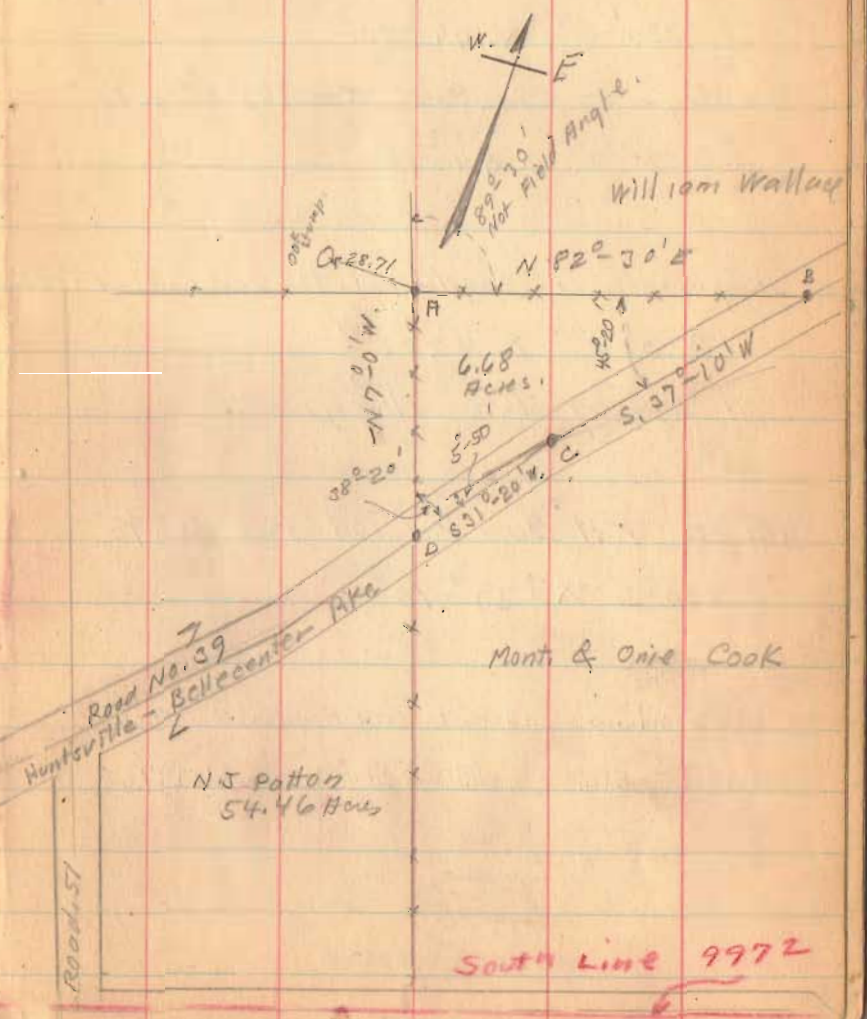 W. E
89°-30'
Not Field Angle.
William Wallace
28.71
N 82°-30' E
A
B
N 7°-0' W.
6.68
Acres.
45°-20'
S, 37°-10' W
5°-50'
C
38°-20'
S 31°-20' W.
D
Road No. 39
Huntsville - Bellecenter Pke
Mont. & Onie Cook
N J Patton
54.46 Acres
Road 51
South Line 9972